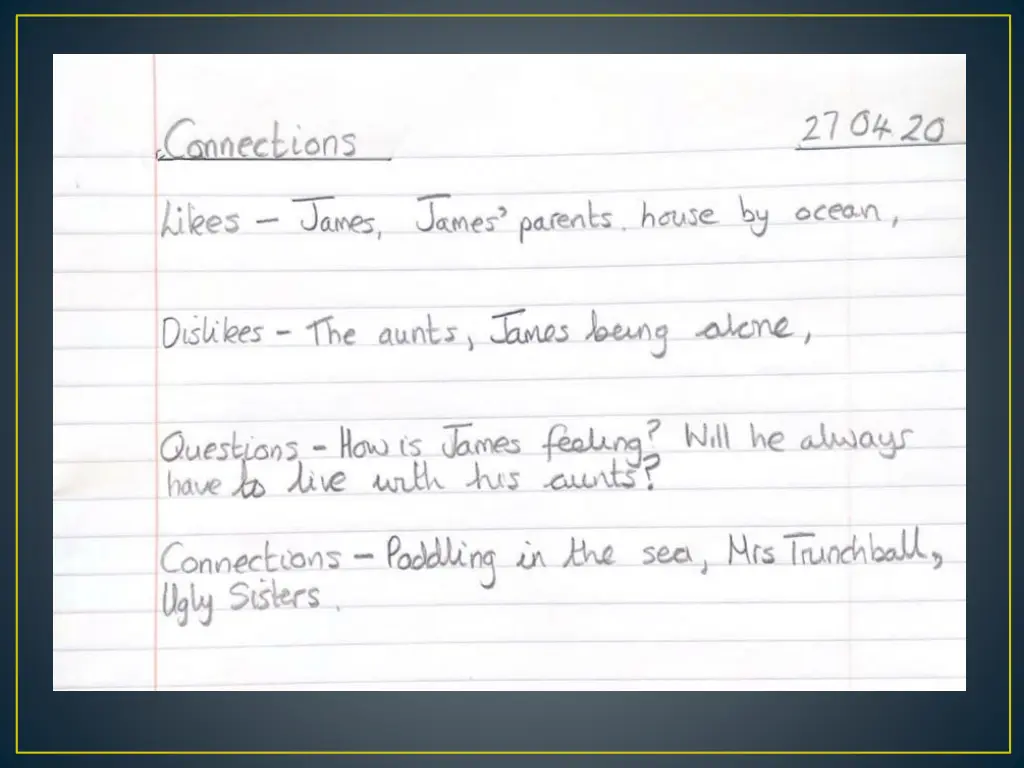 Connections
27 04 20
Likes - James, James' parents. house by ocean,
Dislikes - The aunts, James being alone,
Questions - How is James feeling? Will he always
have to live with his aunts?
Connections - Paddling in the sea, Mrs Trunchball,
Ugly Sisters.